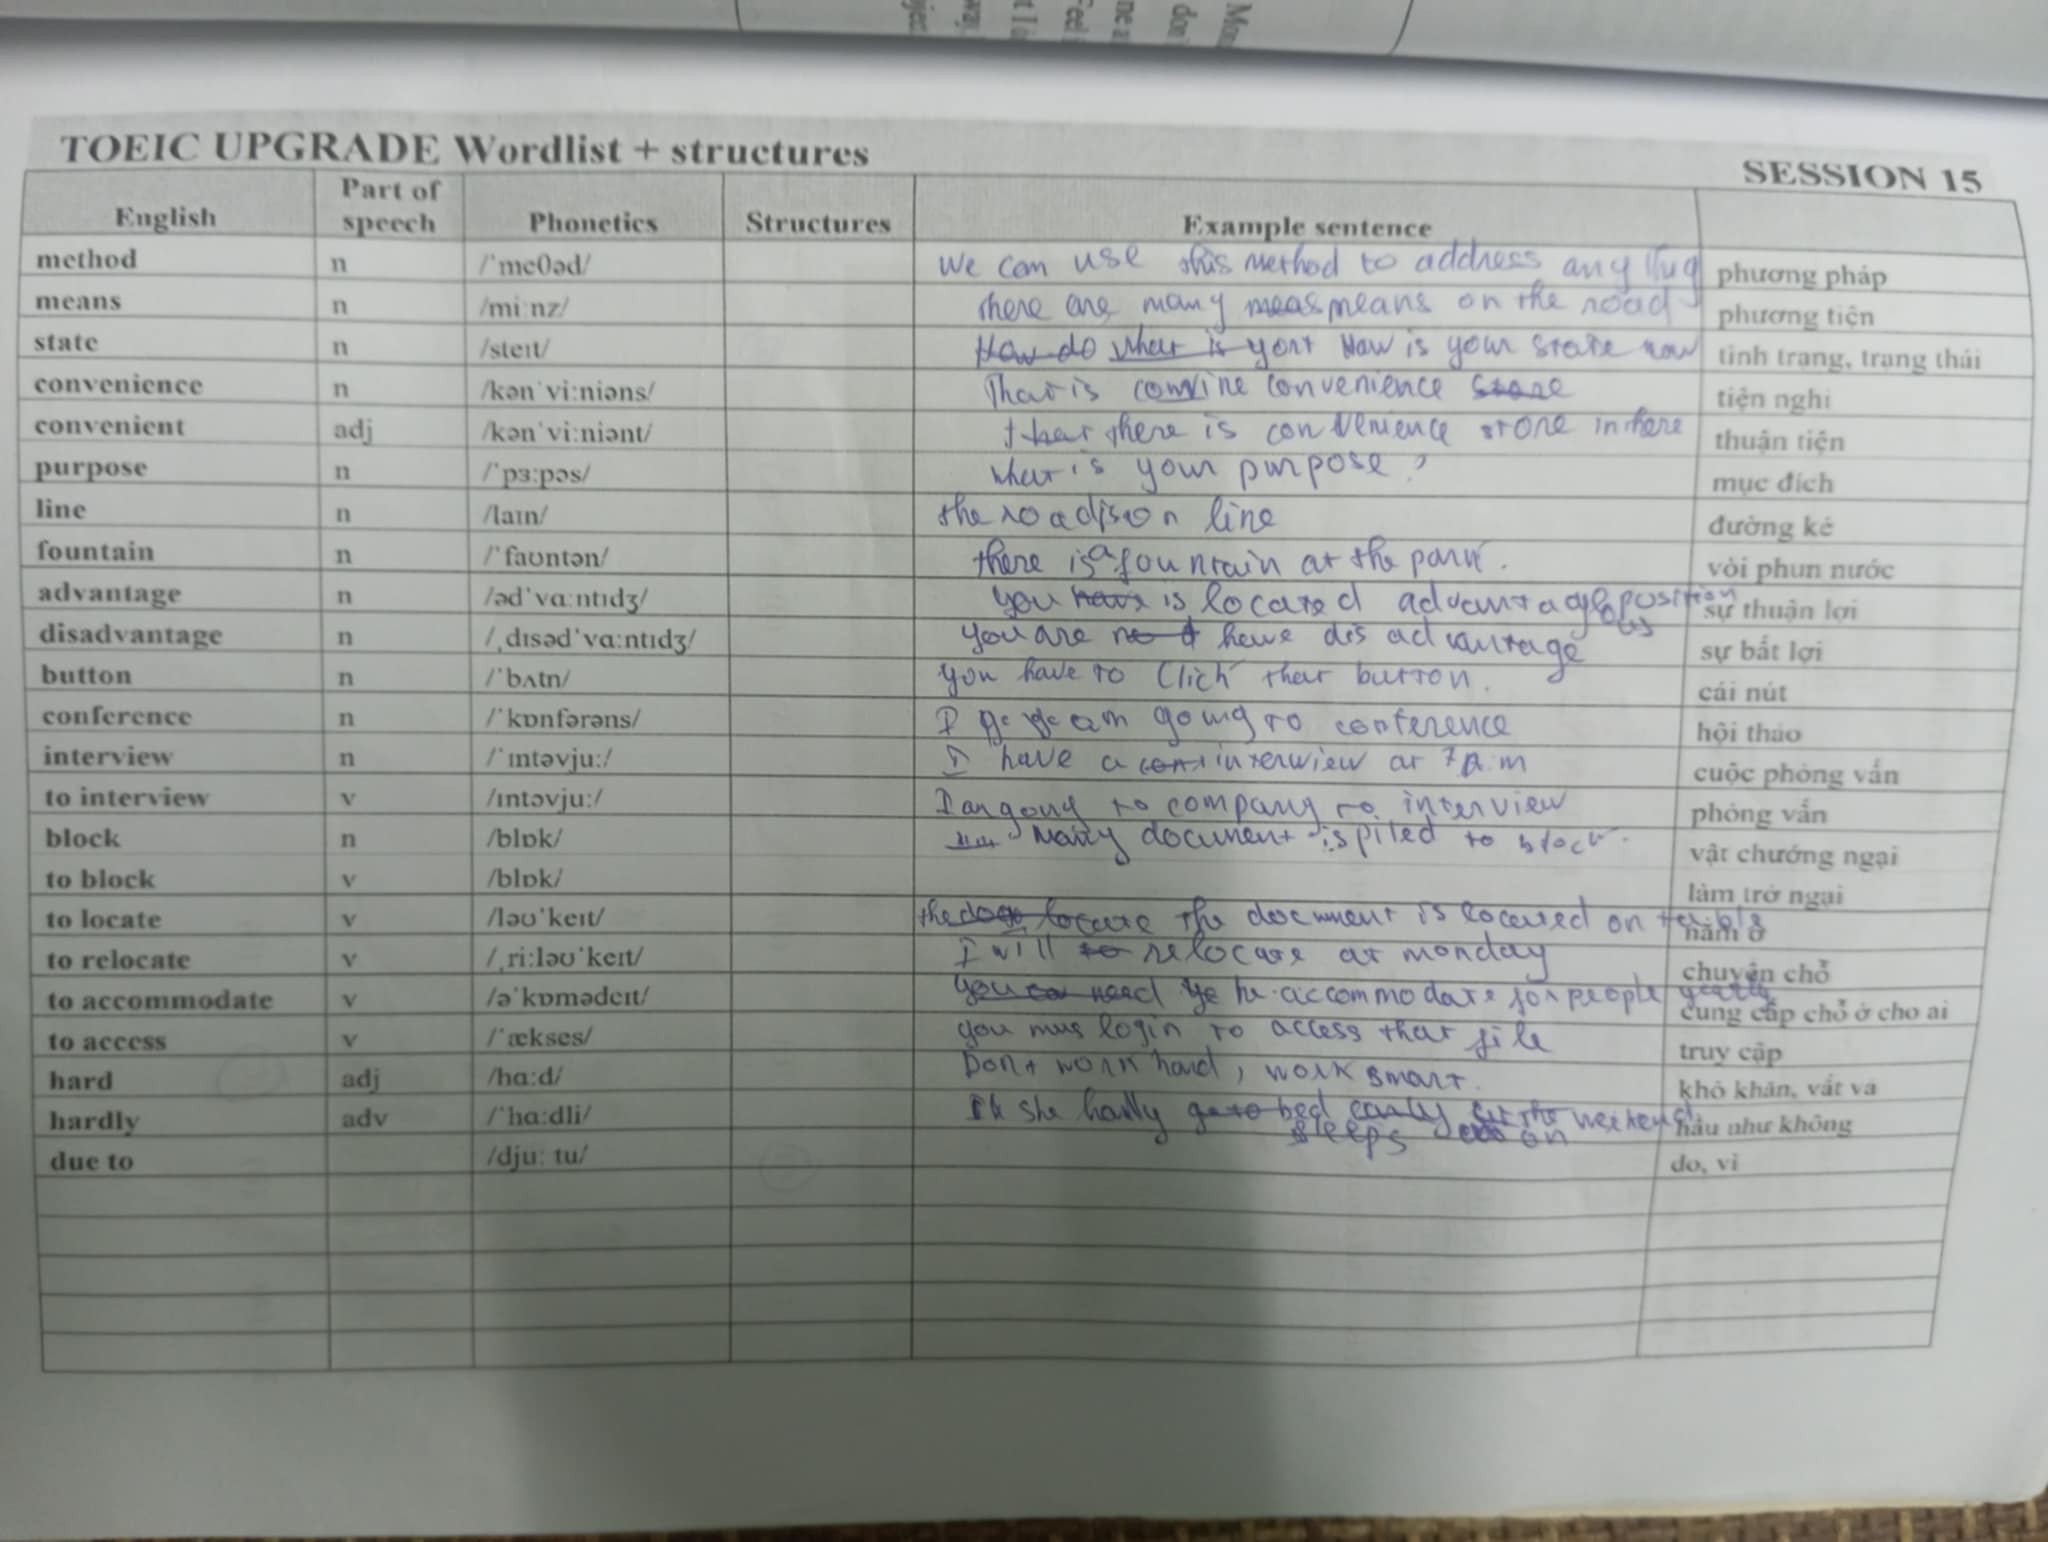 TOEIC UPGRADE Wordlist + structures SESSION 15
English Part of speech Phonetics Structures Example sentence
method n /ˈmeθəd/ We can use this method to address any phương pháp
means n /miːnz/ there are many means on the road phương tiện
state n /steɪt/ How is your state now tình trạng, trạng thái
convenience n /kənˈviːniəns/ That is convenience store tiện nghi
convenient adj /kənˈviːniənt/ there is convenience store in here thuận tiện
purpose n /ˈpɜːpəs/ what is your purpose? mục đích
line n /laɪn/ the road is on line đường kẻ
fountain n /ˈfaʊntən/ there is a fountain at the park. vòi phun nước
advantage n /ədˈvɑːntɪdʒ/ you is located advantageous position sự thuận lợi
disadvantage n /ˌdɪsədˈvɑːntɪdʒ/ you are have disadvantage sự bất lợi
button n /ˈbʌtn/ you have to click that button. cái nút
conference n /ˈkɒnfərəns/ I am going to conference hội thảo
interview n /ˈɪntəvjuː/ I have a interview at 7 a.m cuộc phỏng vấn
to interview v /ɪntəvjuː/ I am going to company to interview phỏng vấn
block n /blɒk/ Many document is piled to block. vật chướng ngại
to block v /blɒk/ làm trở ngại
to locate v /ləʊˈkeɪt/ the document is located on nằm ở
to relocate v /ˌriːləʊˈkeɪt/ I will relocate at monday chuyển chỗ
to accommodate v /əˈkɒmədeɪt/ accommodate for people cung cấp chỗ ở cho ai
to access v /ˈækses/ you mus login to access that file truy cập
hard adj /hɑːd/ Don't work hard, work smart. khó khăn, vất vả
hardly adv /ˈhɑːdli/ she hardly sleeps on the weekend hầu như không
due to /djuː tu/ do, vì